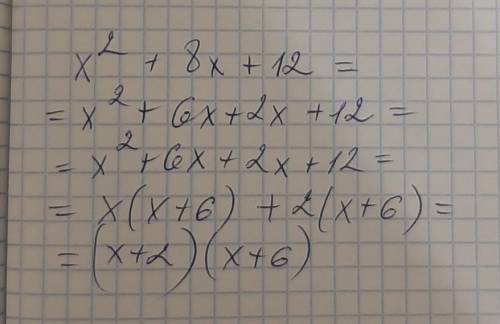 x² + 8x + 12 =
= x² + 6x + 2x + 12 =
= x² + 6x + 2x + 12 =
= x(x+6) + 2(x+6) =
= (x+2)(x+6)